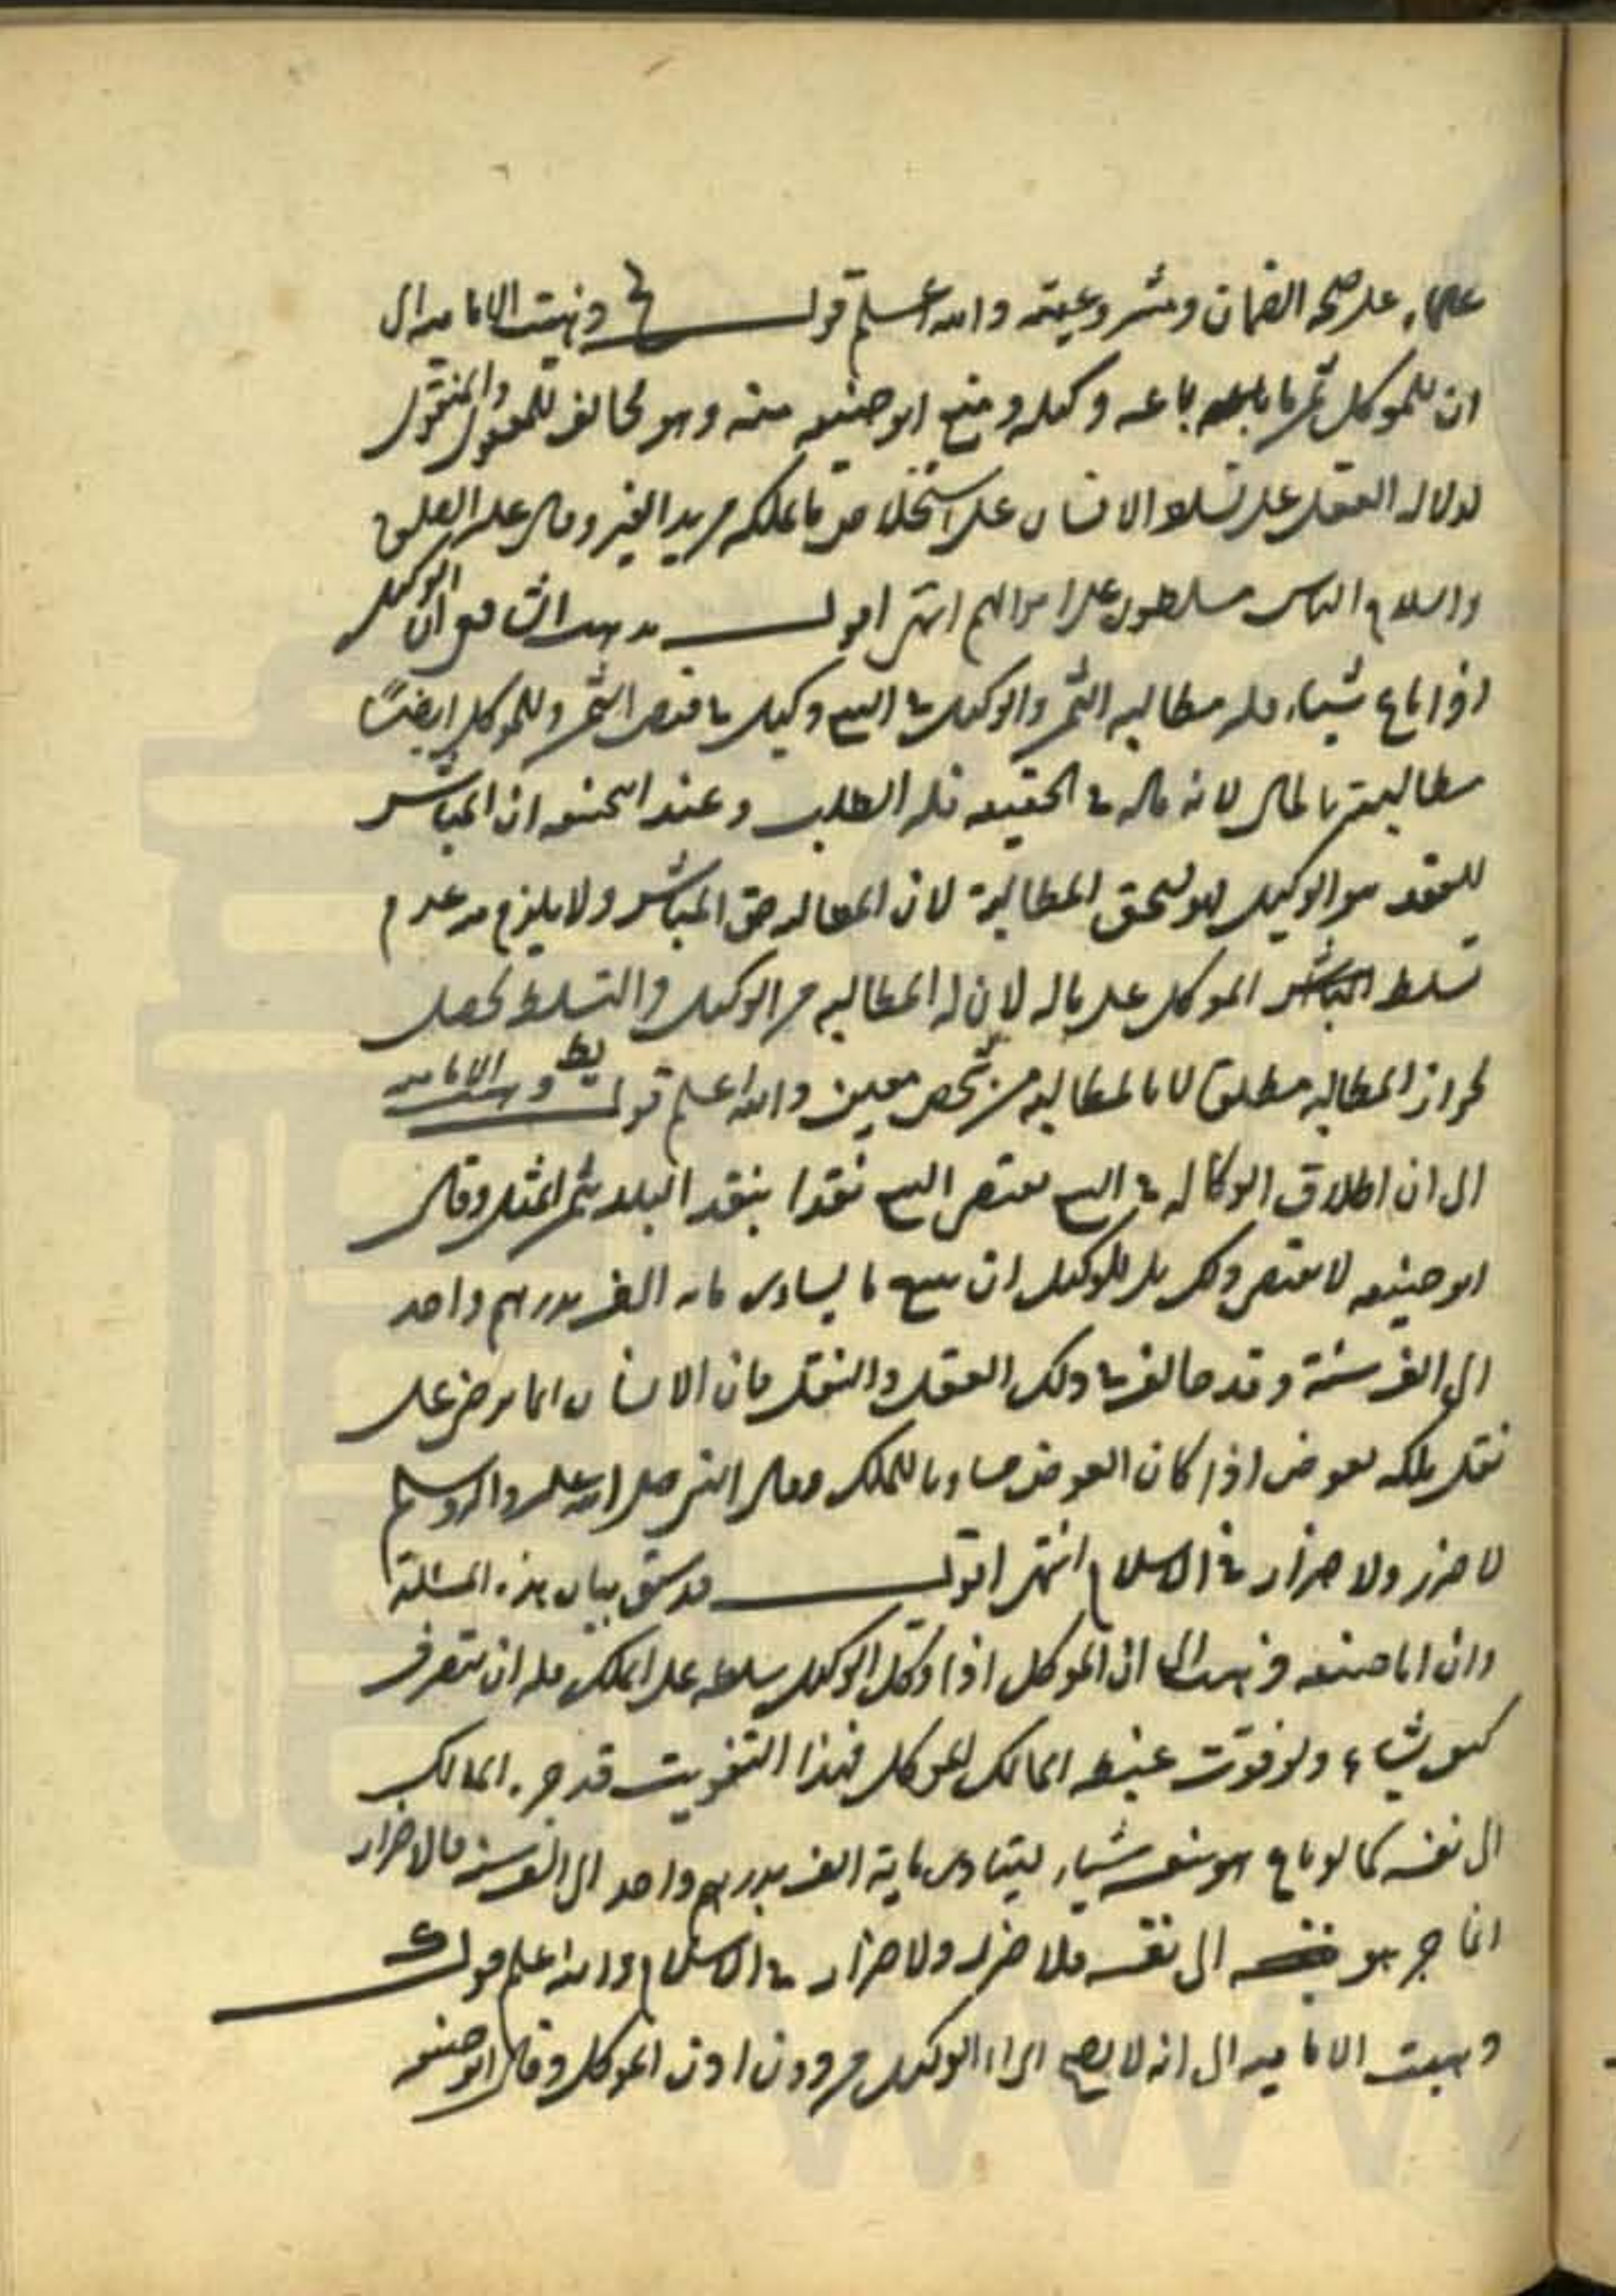 على صحة الضمان ومشروعيته والله اعلم قوله يح وذهبت الامامية الى
ان للموكل ثمن ما باعه وكيله ومنع ابو حنيفه منه وهو مخالف للمعقول والمنقول
لدلالة العقل على تسلط الانسان على استخلاص ما يملكه من يد الغير وقال عليه الصلوة
والسلام الناس مسلطون على اموالهم انتهى اقول مذهب الشافعي ان الوكيل
اذا باع شيئا، فله مطالبه الثمن والوكيل في البيع وكيل في قبض الثمن وللموكل ايضًا
مطالبته بالمال لانه ماله في الحقيقه فله الطلب وعند ابي حنيفه ان المباشر
للعقد هو الوكيل فهو يستحق المطالبة لان المطالبه حق المباشر ولا يلزم منه عدم
تسلط الموكل على ماله لان له المطالبه من الوكيل والتسلط يحصل
بجواز المطالبه مطلقا لا بالمطالبه من شخص معين والله اعلم قوله يط وذهبت الاماميه
الى ان اطلاق الوكاله في البيع يقتضى البيع نقدا بنقد البلد بثمن المثل وقال
ابو حنيفه لا يقتضى ذلك بل للوكيل ان يبيع ما يساوى مايه الف بدرهم واحد
الى الف سنة وقد خالف في ذلك العقل والنقل فان الانسان انما يرضى على
نقل ملكه بعوض اذا كان العوض مساويا للملك وقال النبى صلى الله عليه واله وسلم
لا ضرر ولا ضرار في الاسلام انتهى اقول قد سبق بيان هذه المسئلة
وان ابا حنيفه ذهب الى ان الموكل اذا وكل الوكيل سلطه على الملك فله ان يتصرف
كيف يشاء ولو فوّت غبطه المالك الموكل فهذا التفويت قد جره المالك
الى نفسه كما لو باع هو بنفسه شيئا، يساوى ماية الف بدرهم واحد الى الف سنه فالاضرار
انما جر هو الى نفسه فلا ضرر ولا ضرار في الاسلام والله اعلم قوله ك
وذهبت الاماميه الى انه لا يصح ابراء الوكيل من دون اذن الموكل وقال ابو حنيفه